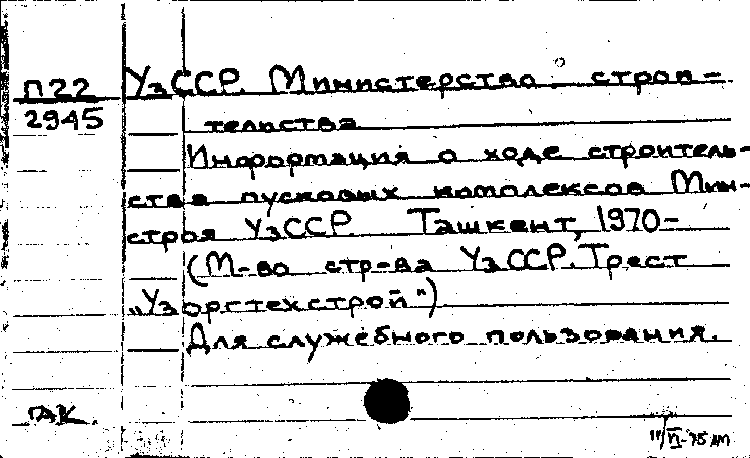 П22 УзССР. Министерство строи-
2945 тельства
Информация о ходе строитель-
ства пусковых комплексов Мин-
строя УзССР. Ташкент, 1970-
(М-во стр-ва УзССР. Трест
„Узоргтехстрой")
Для служебного пользования.
ГАК.
11/VI-75 АМ